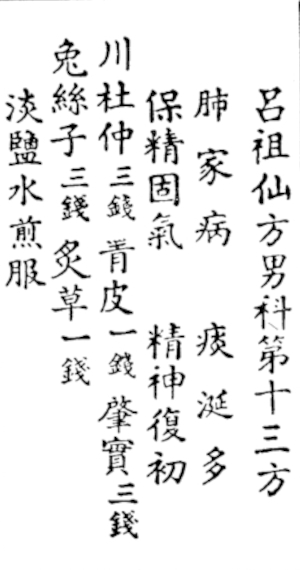 呂祖仙方男科第十三方
肺家病 痰涎多
保精固氣 精神復初
川杜仲三錢 青皮一錢 肇實三錢
兔絲子三錢 炙草一錢
淡鹽水煎服